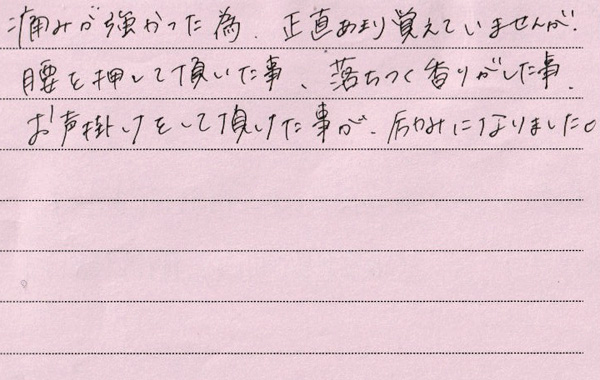 痛みが強かった為、正直あまり覚えていませんが、
腰を押して頂いた事、落ちつく香りがした事、
お声掛けをして頂けた事が、励みになりました。